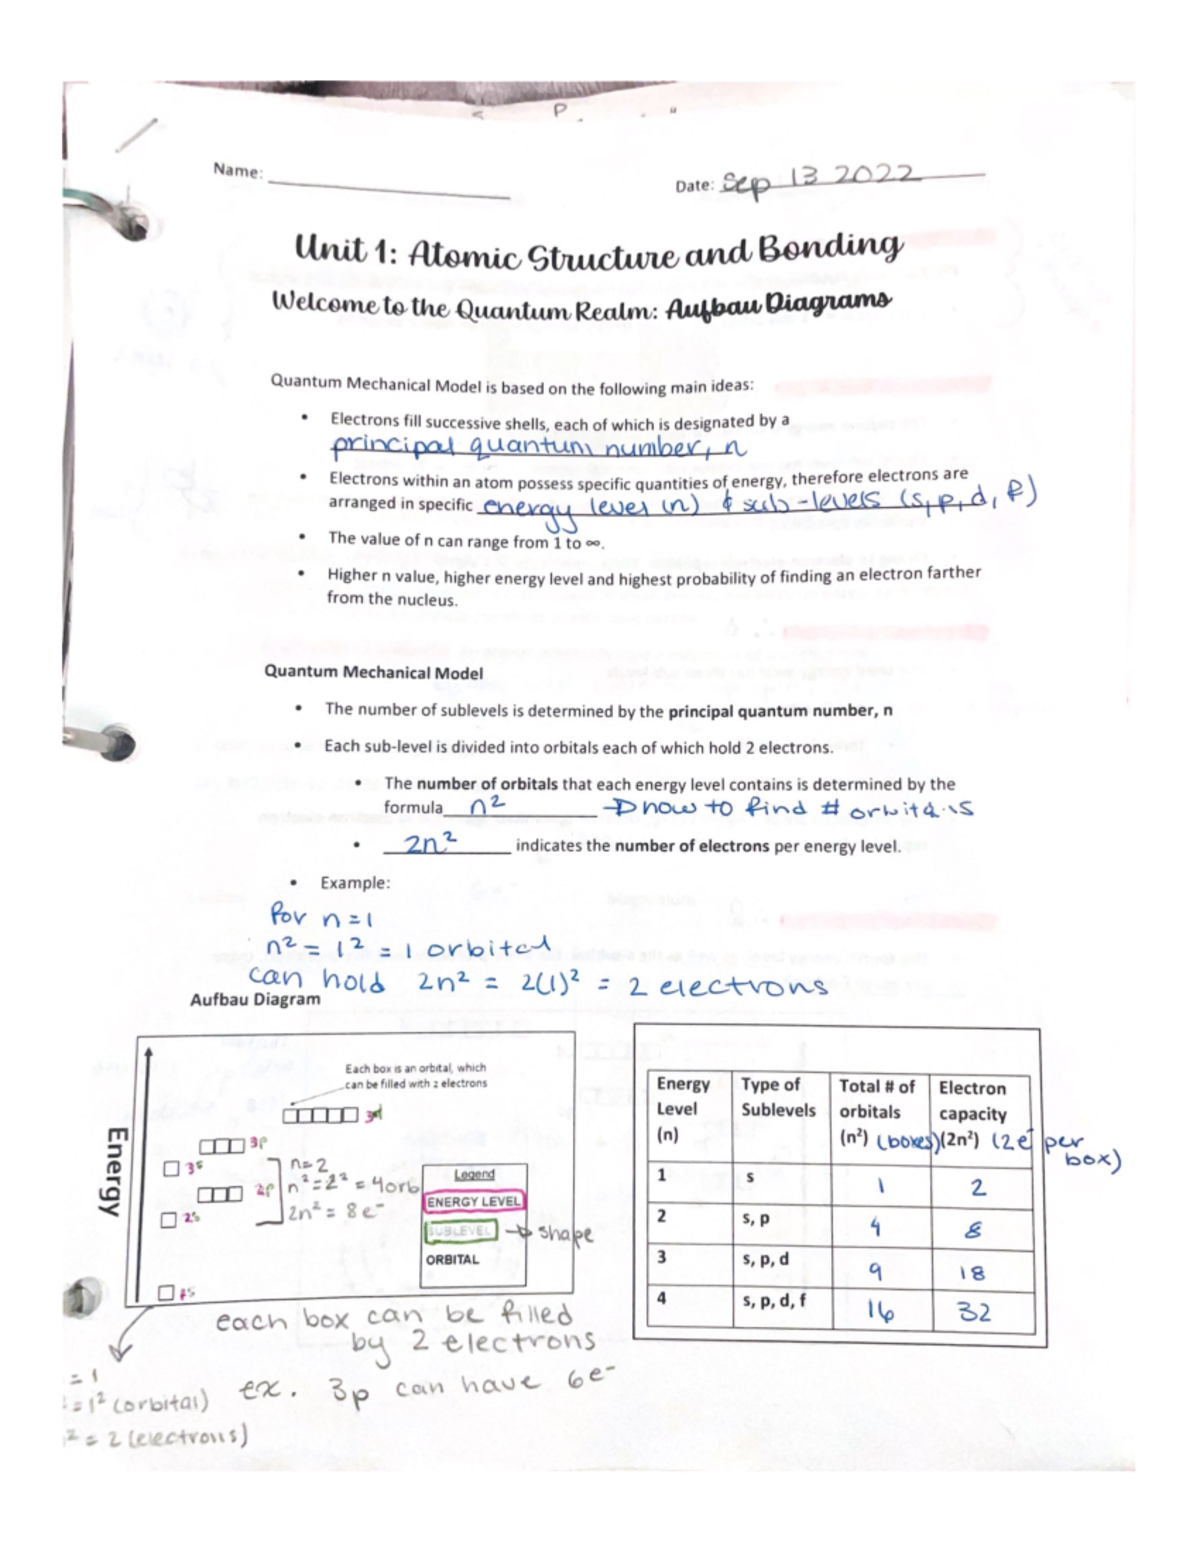 P
Name:
Date: Sep 13 2022
Unit 1: Atomic Structure and Bonding
Welcome to the Quantum Realm: Aufbau Diagrams
Quantum Mechanical Model is based on the following main ideas:
• Electrons fill successive shells, each of which is designated by a
principal quantum number, n
• Electrons within an atom possess specific quantities of energy, therefore electrons are
arranged in specific energy level (n) & sub-levels (s, p, d, f)
• The value of n can range from 1 to ∞.
• Higher n value, higher energy level and highest probability of finding an electron farther
from the nucleus.
Quantum Mechanical Model
• The number of sublevels is determined by the principal quantum number, n
• Each sub-level is divided into orbitals each of which hold 2 electrons.
• The number of orbitals that each energy level contains is determined by the
formula n² → how to find # orbitals
• 2n² indicates the number of electrons per energy level.
• Example:
for n=1
n² = 1² = 1 orbital
can hold 2n² = 2(1)² = 2 electrons
Aufbau Diagram
Energy
Each box is an orbital, which
can be filled with 2 electrons
3d
3p
3s
2p
2s
1s
n=2
n²=2²=4orb
2n²=8e⁻
Legend
ENERGY LEVEL
SUBLEVEL → shape
ORBITAL
each box can be filled
by 2 electrons
ex. 3p can have 6e⁻
= 1
= 1² (orbital)
² = 2 (electrons)
Energy Level (n) Type of Sublevels Total # of orbitals (n²) (boxes) Electron capacity (2n²) (2e⁻ per box)
1 s 1 2
2 s, p 4 8
3 s, p, d 9 18
4 s, p, d, f 16 32